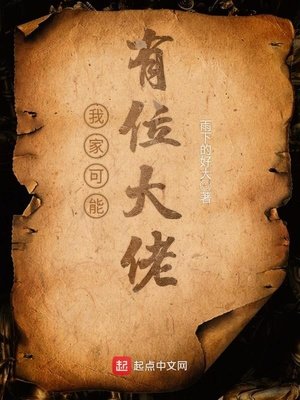 我家可能
有位大佬
雨下的好大○著
起
起点中文网